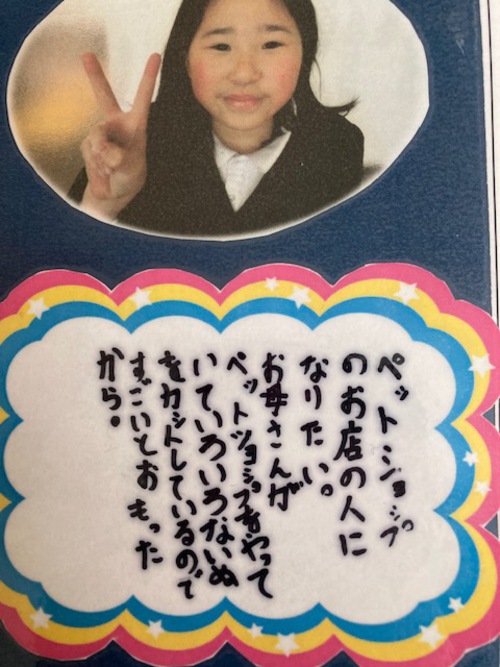 ペットショップ
のお店の人に
なりたい。
お母さんが
ペットツョップをやって
いていろいろないぬ
をカットしているので
すごいとおもった
から。